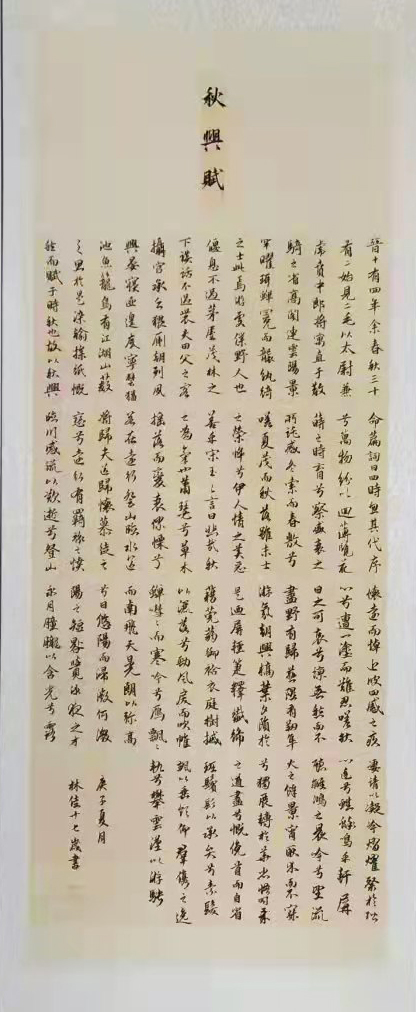 秋興賦
晉十有四年余春秋三十
有二始見二毛以太尉兼
虎賁中郎將寓直于散
騎之省高閣連雲陽景
罕曜珥蟬冕而襲紈綺
之士此焉游處僕野人也
偃息不過茅屋茂林之
下談話不過農夫田父之客
攝官承乏猥廁朝列夙
興晏寢匪遑底寧譬猶
池魚籠鳥有江湖山藪
之思於是染翰操紙慨
然而賦于時秋也故以秋興
命篇詞曰四時忽其代序
兮萬物紛以迴薄覽花
蒔之時育兮察盛衰之
所託感冬索而春敷兮
嗟夏茂而秋落雖末士
之榮悴兮伊人情之美惡
善乎宋玉之言曰悲哉秋
之為氣也蕭瑟兮草木
搖落而變衰憭慄兮
若在遠行登山臨水送
將歸夫送歸懷慕徒之
戀兮遠行有羈旅之憤
臨川感流以歎逝兮登山
懷遠而悼近彼四慼之疚
心兮遭一塗而難忍嗟秋
日之可哀兮諒無愁而不
盡野有歸燕隰有翔隼
游氛朝興槁葉夕殞於
是迺屏輕箑釋纖絺
藉莞蒻御袷衣庭樹槭
以灑落兮勁風戾而吹帷
蟬嘒嘒而寒吟兮雁飄飄
而南飛天晃朗以彌高
兮日悠陽而浸微何微
陽之短晷覺涼夜之方
永月朣朧以含光兮露
凄清以凝冷熠燿粲於階
闥兮蟋蟀鳴乎軒屏
聽離鴻之晨吟兮望流
火之餘景宵耿介而不寐
兮獨展轉於華省悟時歲
之遒盡兮慨俛首而自省
斑鬢髟以承弁兮素髮
颯以垂領仰群儁之逸
軌兮攀雲漢以游騁
庚子夏月
林佳十七歲書